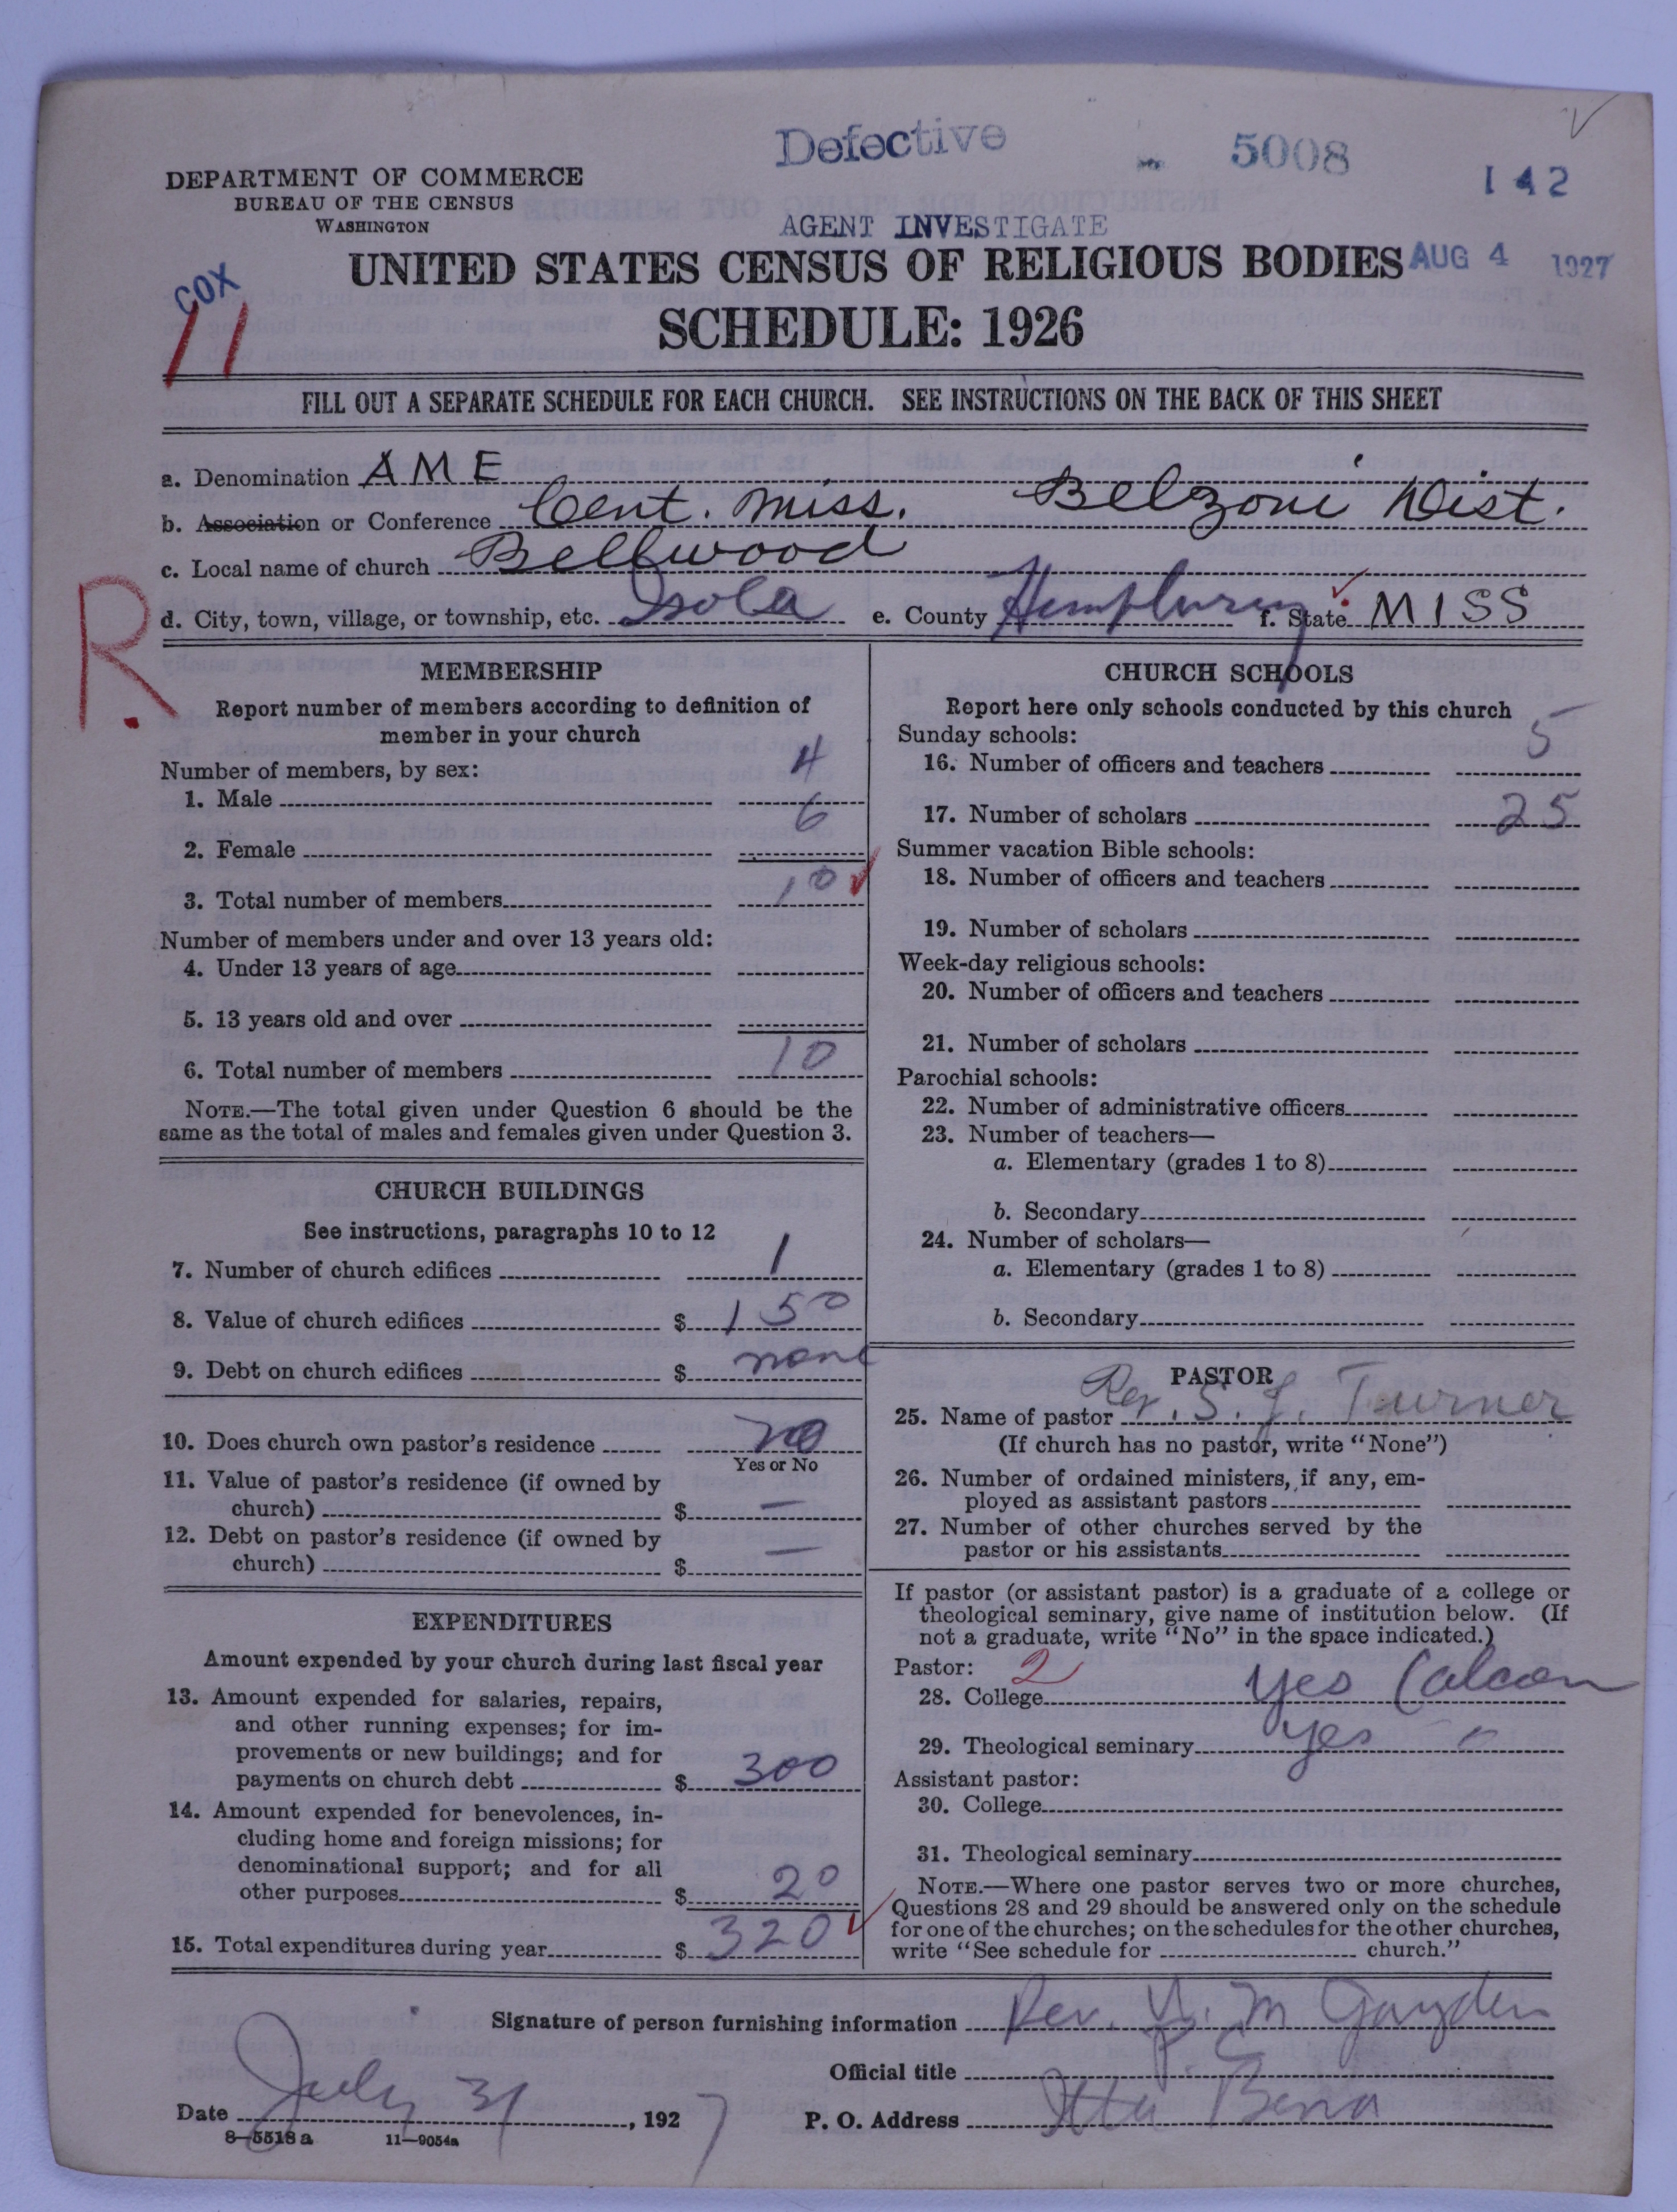 Defective
5008
142
DEPARTMENT OF COMMERCE
BUREAU OF THE CENSUS
WASHINGTON
AGENT INVESTIGATE
UNITED STATES CENSUS OF RELIGIOUS BODIES
AUG 4 1927
COX
11
SCHEDULE: 1926
FILL OUT A SEPARATE SCHEDULE FOR EACH CHURCH. SEE INSTRUCTIONS ON THE BACK OF THIS SHEET
a. Denomination AME
b. Association or Conference Cent. Miss. Belzoni Dist.
c. Local name of church Bellwood
R.
d. City, town, village, or township, etc. Isola e. County Humphurey f. State MISS
MEMBERSHIP
Report number of members according to definition of
member in your church
Number of members, by sex:
1. Male 4
2. Female 6
3. Total number of members 10
Number of members under and over 13 years old:
4. Under 13 years of age
5. 13 years old and over
6. Total number of members 10
NOTE.—The total given under Question 6 should be the
same as the total of males and females given under Question 3.
CHURCH BUILDINGS
See instructions, paragraphs 10 to 12
7. Number of church edifices 1
8. Value of church edifices $ 150
9. Debt on church edifices $ none
10. Does church own pastor's residence no
Yes or No
11. Value of pastor's residence (if owned by
church) $ —
12. Debt on pastor's residence (if owned by
church) $ —
EXPENDITURES
Amount expended by your church during last fiscal year
13. Amount expended for salaries, repairs,
and other running expenses; for im-
provements or new buildings; and for
payments on church debt $ 300
14. Amount expended for benevolences, in-
cluding home and foreign missions; for
denominational support; and for all
other purposes $ 20
15. Total expenditures during year $ 320
CHURCH SCHOOLS
Report here only schools conducted by this church
Sunday schools:
16. Number of officers and teachers 5
17. Number of scholars 25
Summer vacation Bible schools:
18. Number of officers and teachers
19. Number of scholars
Week-day religious schools:
20. Number of officers and teachers
21. Number of scholars
Parochial schools:
22. Number of administrative officers
23. Number of teachers—
a. Elementary (grades 1 to 8)
b. Secondary
24. Number of scholars—
a. Elementary (grades 1 to 8)
b. Secondary
PASTOR
25. Name of pastor Rev. S. J. Turner
(If church has no pastor, write "None")
26. Number of ordained ministers, if any, em-
ployed as assistant pastors
27. Number of other churches served by the
pastor or his assistants
If pastor (or assistant pastor) is a graduate of a college or
theological seminary, give name of institution below. (If
not a graduate, write "No" in the space indicated.)
Pastor: 2
28. College yes (alcorn
29. Theological seminary yes - "
Assistant pastor:
30. College
31. Theological seminary
NOTE.—Where one pastor serves two or more churches,
Questions 28 and 29 should be answered only on the schedule
for one of the churches; on the schedules for the other churches,
write "See schedule for church."
Signature of person furnishing information Rev. M Gayden
Official title P. E
Date July 31, 1927 P. O. Address Itta Bena
8—5518a 11—9054a